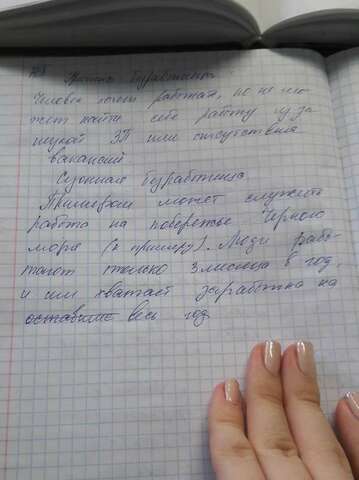 Причины безработицы:
Человек хочет работать, но не мо-
жет найти себе работу из за
низкой ЗП или отсутствия
вакансий
Сезонная безработица
Примером может служить
работа на побережье Чёрного
моря (к примеру). Люди рабо-
тают только 3 месяца в год,
и им хватает заработка на
оставшие весь год